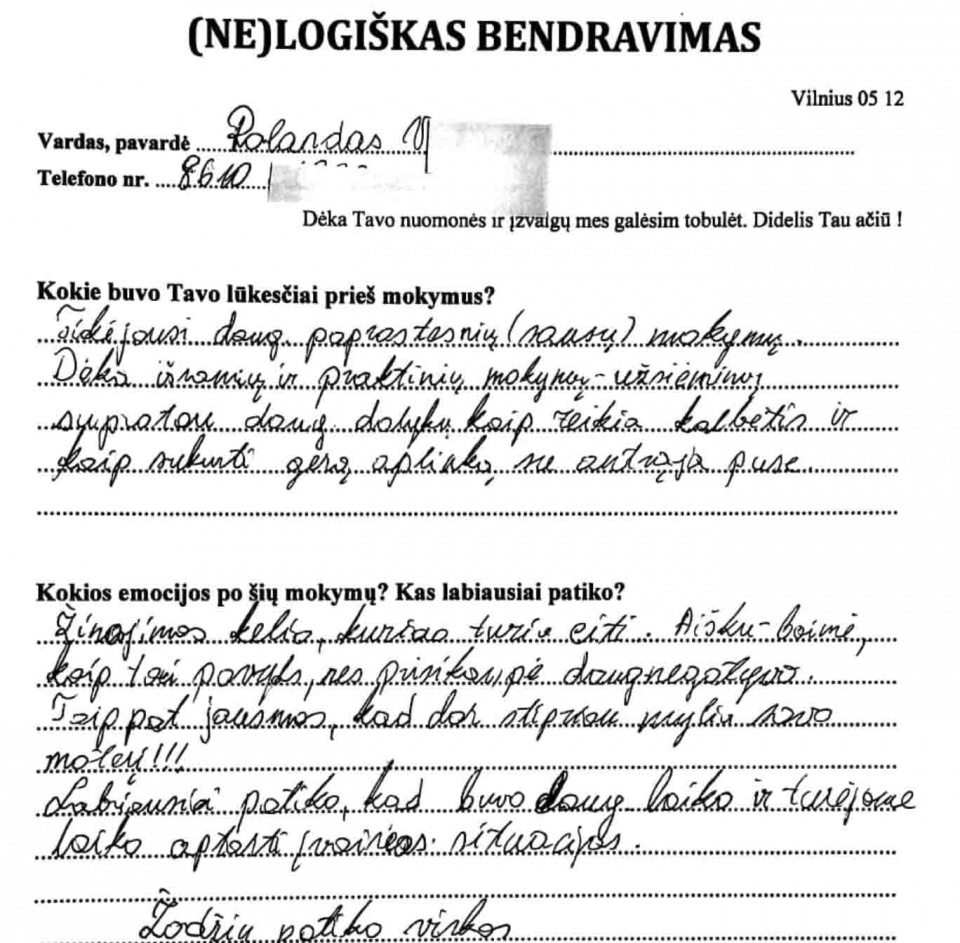 (NE)LOGIŠKAS BENDRAVIMAS
Vilnius 05 12
Vardas, pavardė Rolandas V
Telefono nr. 8610
Dėka Tavo nuomonės ir įžvalgų mes galėsim tobulėt. Didelis Tau ačiū !
Kokie buvo Tavo lūkesčiai prieš mokymus?
Tikėjausi daug paprastesnių (sausų) mokymų.
Dėka išsamių ir praktinių mokymų-užsiėmimų
supratau daug dalykų kaip reikia kalbėtis ir
kaip sukurti gerą aplinką su antrąja puse.
Kokios emocijos po šių mokymų? Kas labiausiai patiko?
Žinojimas kelio, kuriuo turiu eiti. Aišku-baimė,
kaip tai pavyks, nes prisikaupė daug negatyvo.
Taip pat jausmas, kad dar stipriau myliu savo
moterį!!!
Labiausiai patiko, kad buvo daug laiko ir turėjome
laiko aptarti įvairias situacijas.
Žodžiu patiko viskas